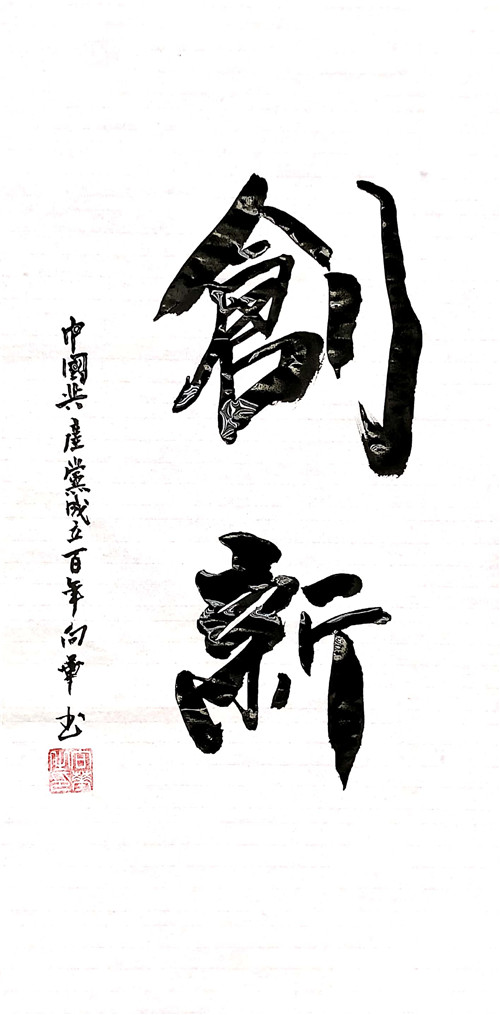 創新
中國共產黨成立百年向華书